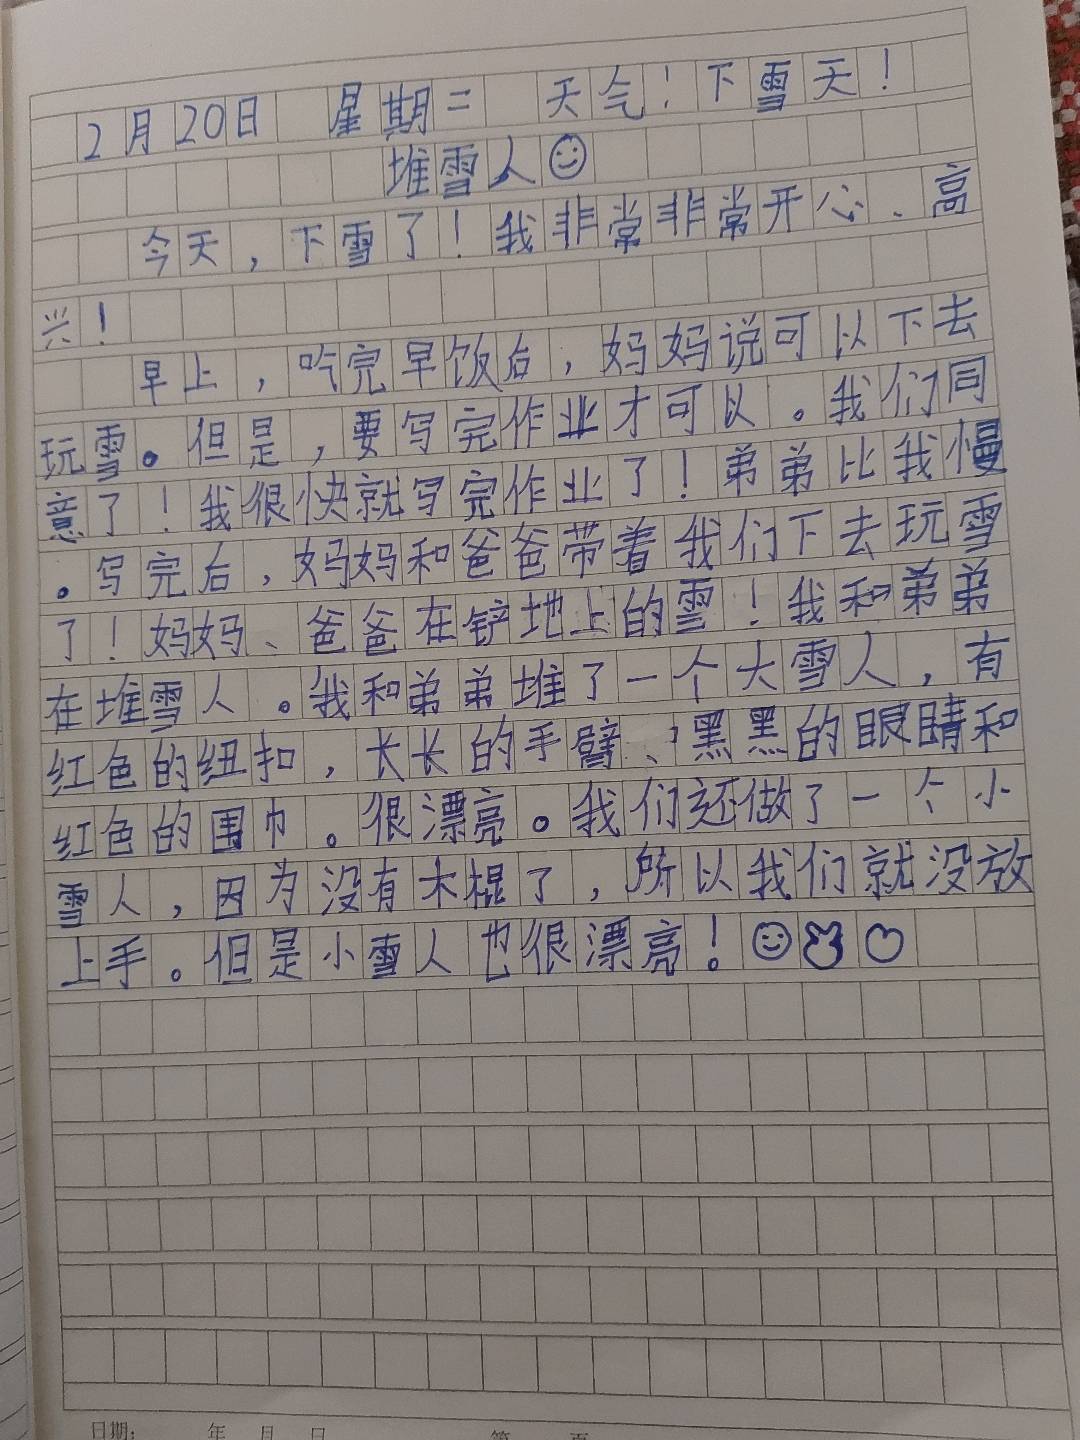 2月20日 星期二 天气：下雪天！
堆雪人
今天，下雪了！我非常非常开心、高
兴！
早上，吃完早饭后，妈妈说可以下去
玩雪。但是，要写完作业才可以。我们同
意了！我很快就写完作业了！弟弟比我慢
。写完后，妈妈和爸爸带着我们下去玩雪
了！妈妈、爸爸在铲地上的雪！我和弟弟
在堆雪人。我和弟弟堆了一个大雪人，有
红色的纽扣，长长的手臂、黑黑的眼睛和
红色的围巾。很漂亮。我们还做了一个小
雪人，因为没有木棍了，所以我们就没放
上手。但是小雪人也很漂亮！
日期： 年 月 日 第 页